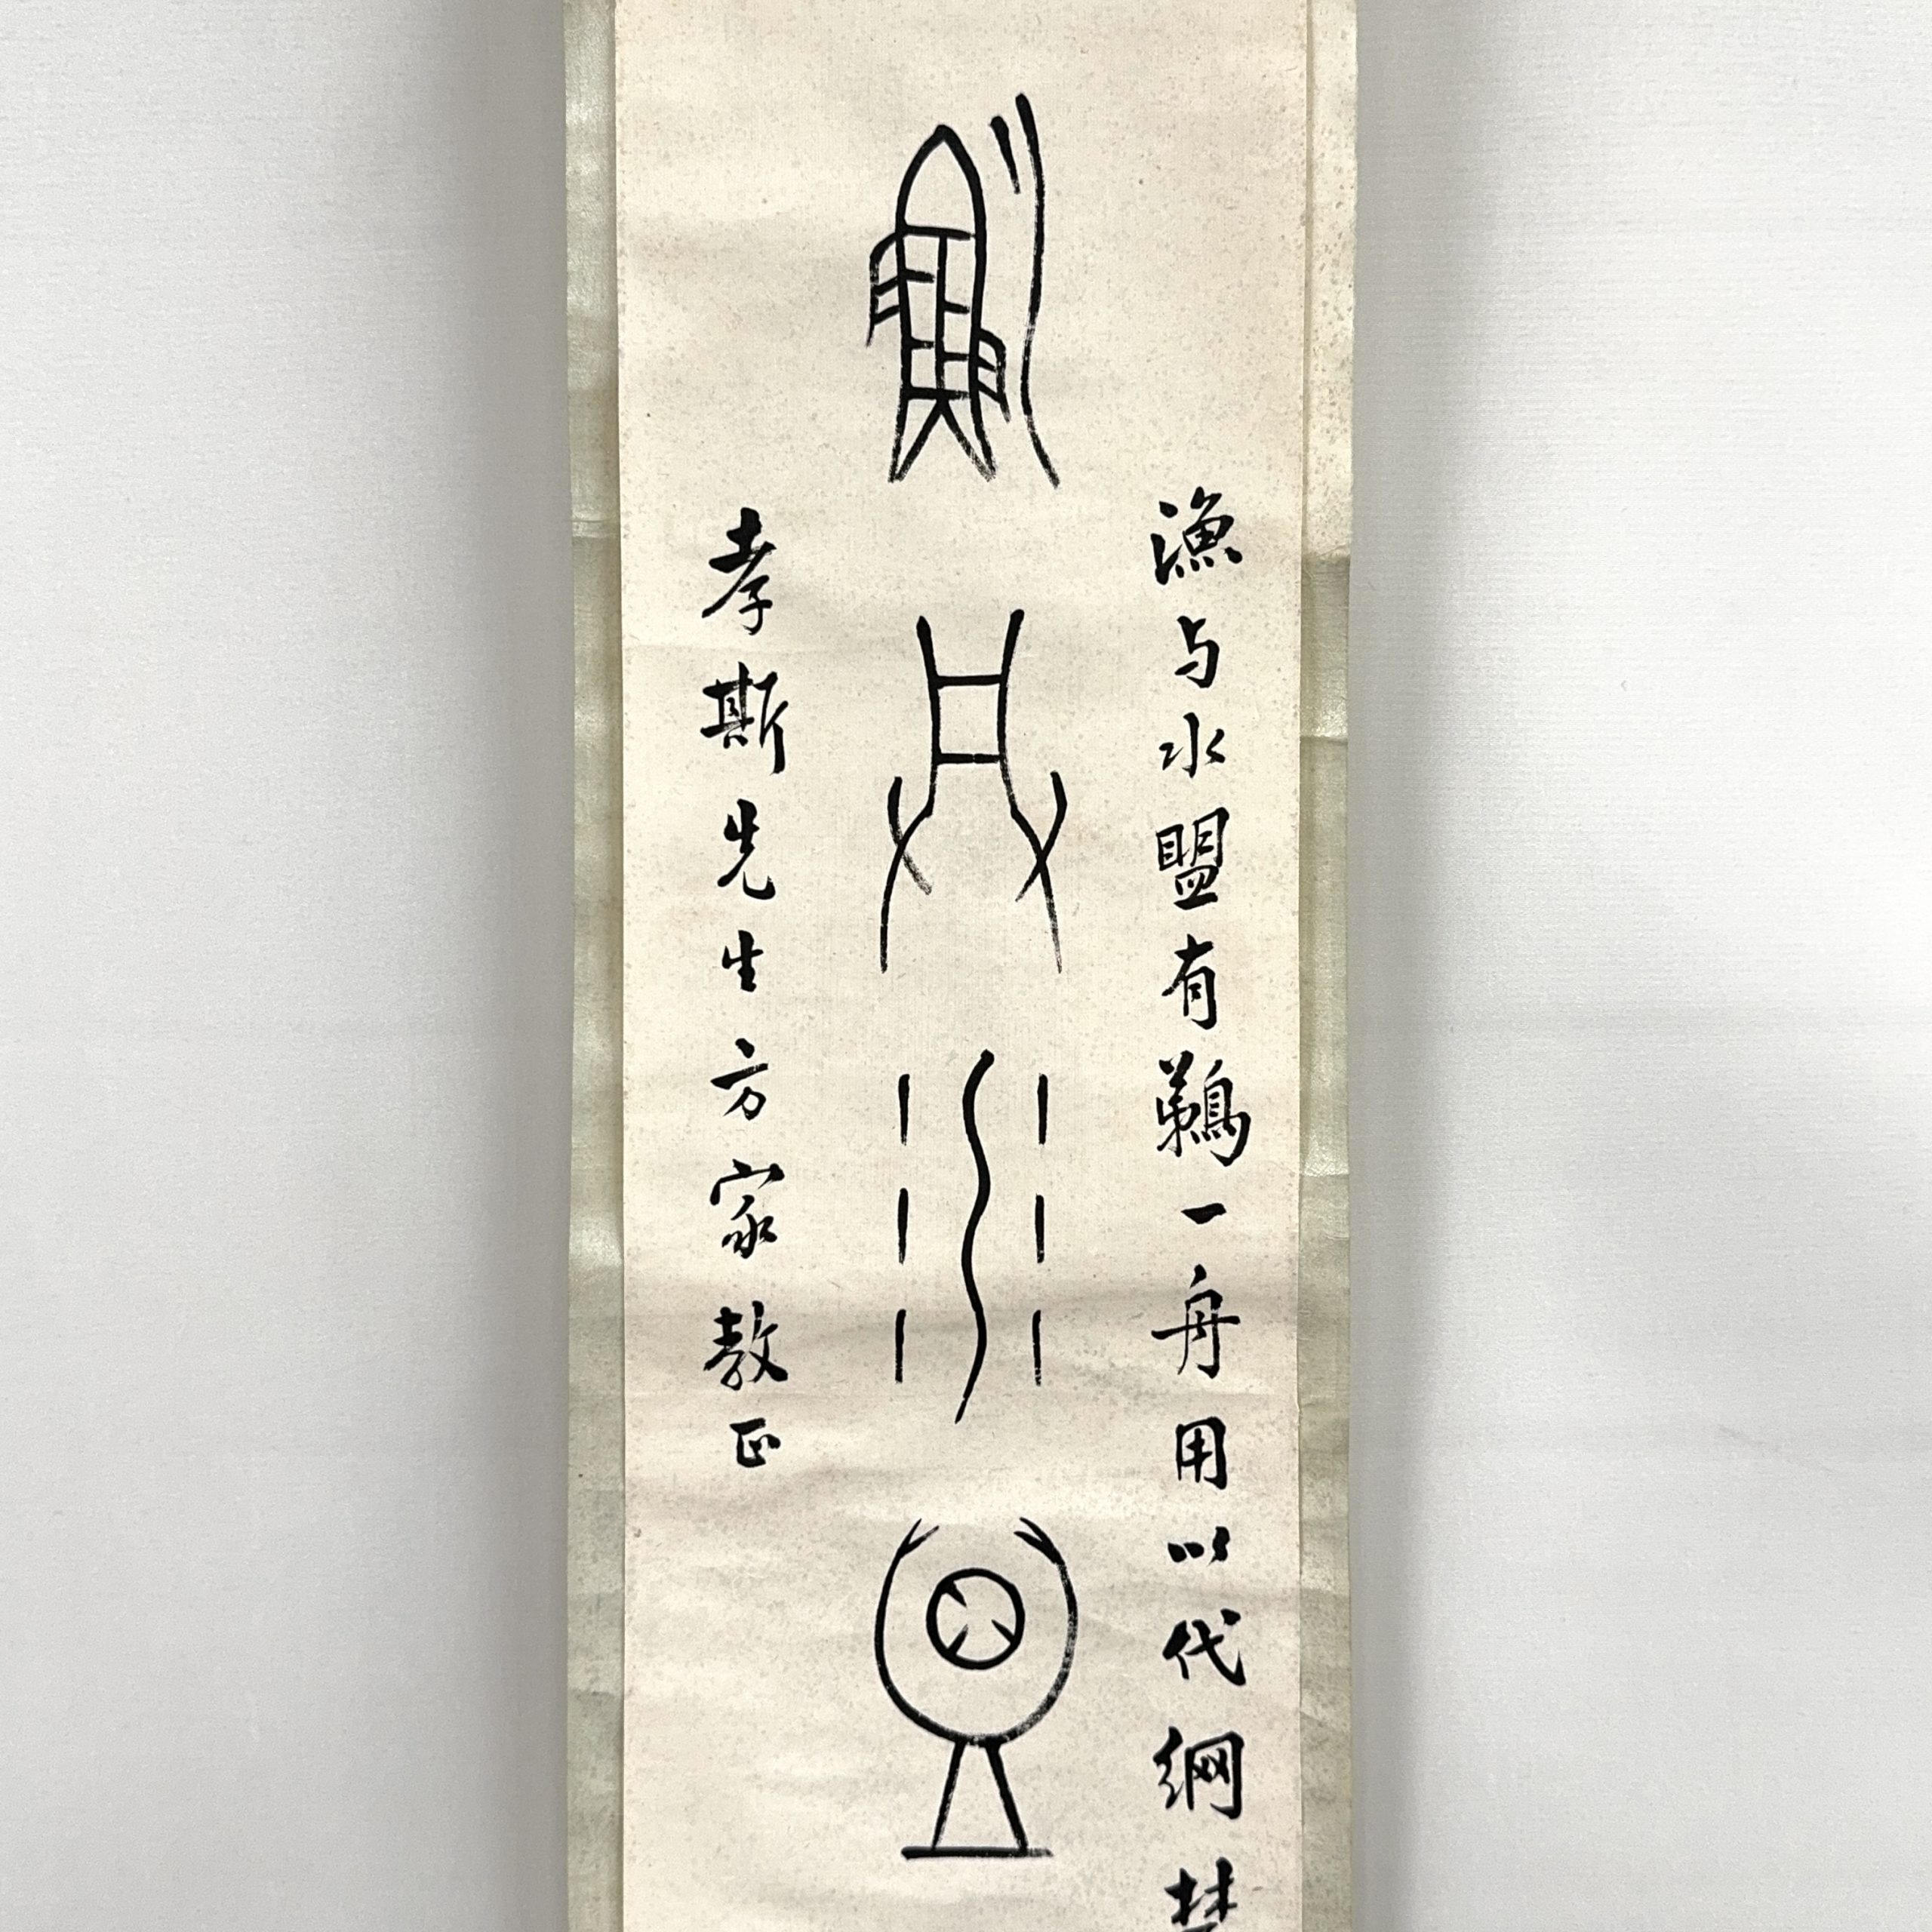 漁与水盟有鵜一舟用以代網
漁与水盟
孝斯先生方家教正